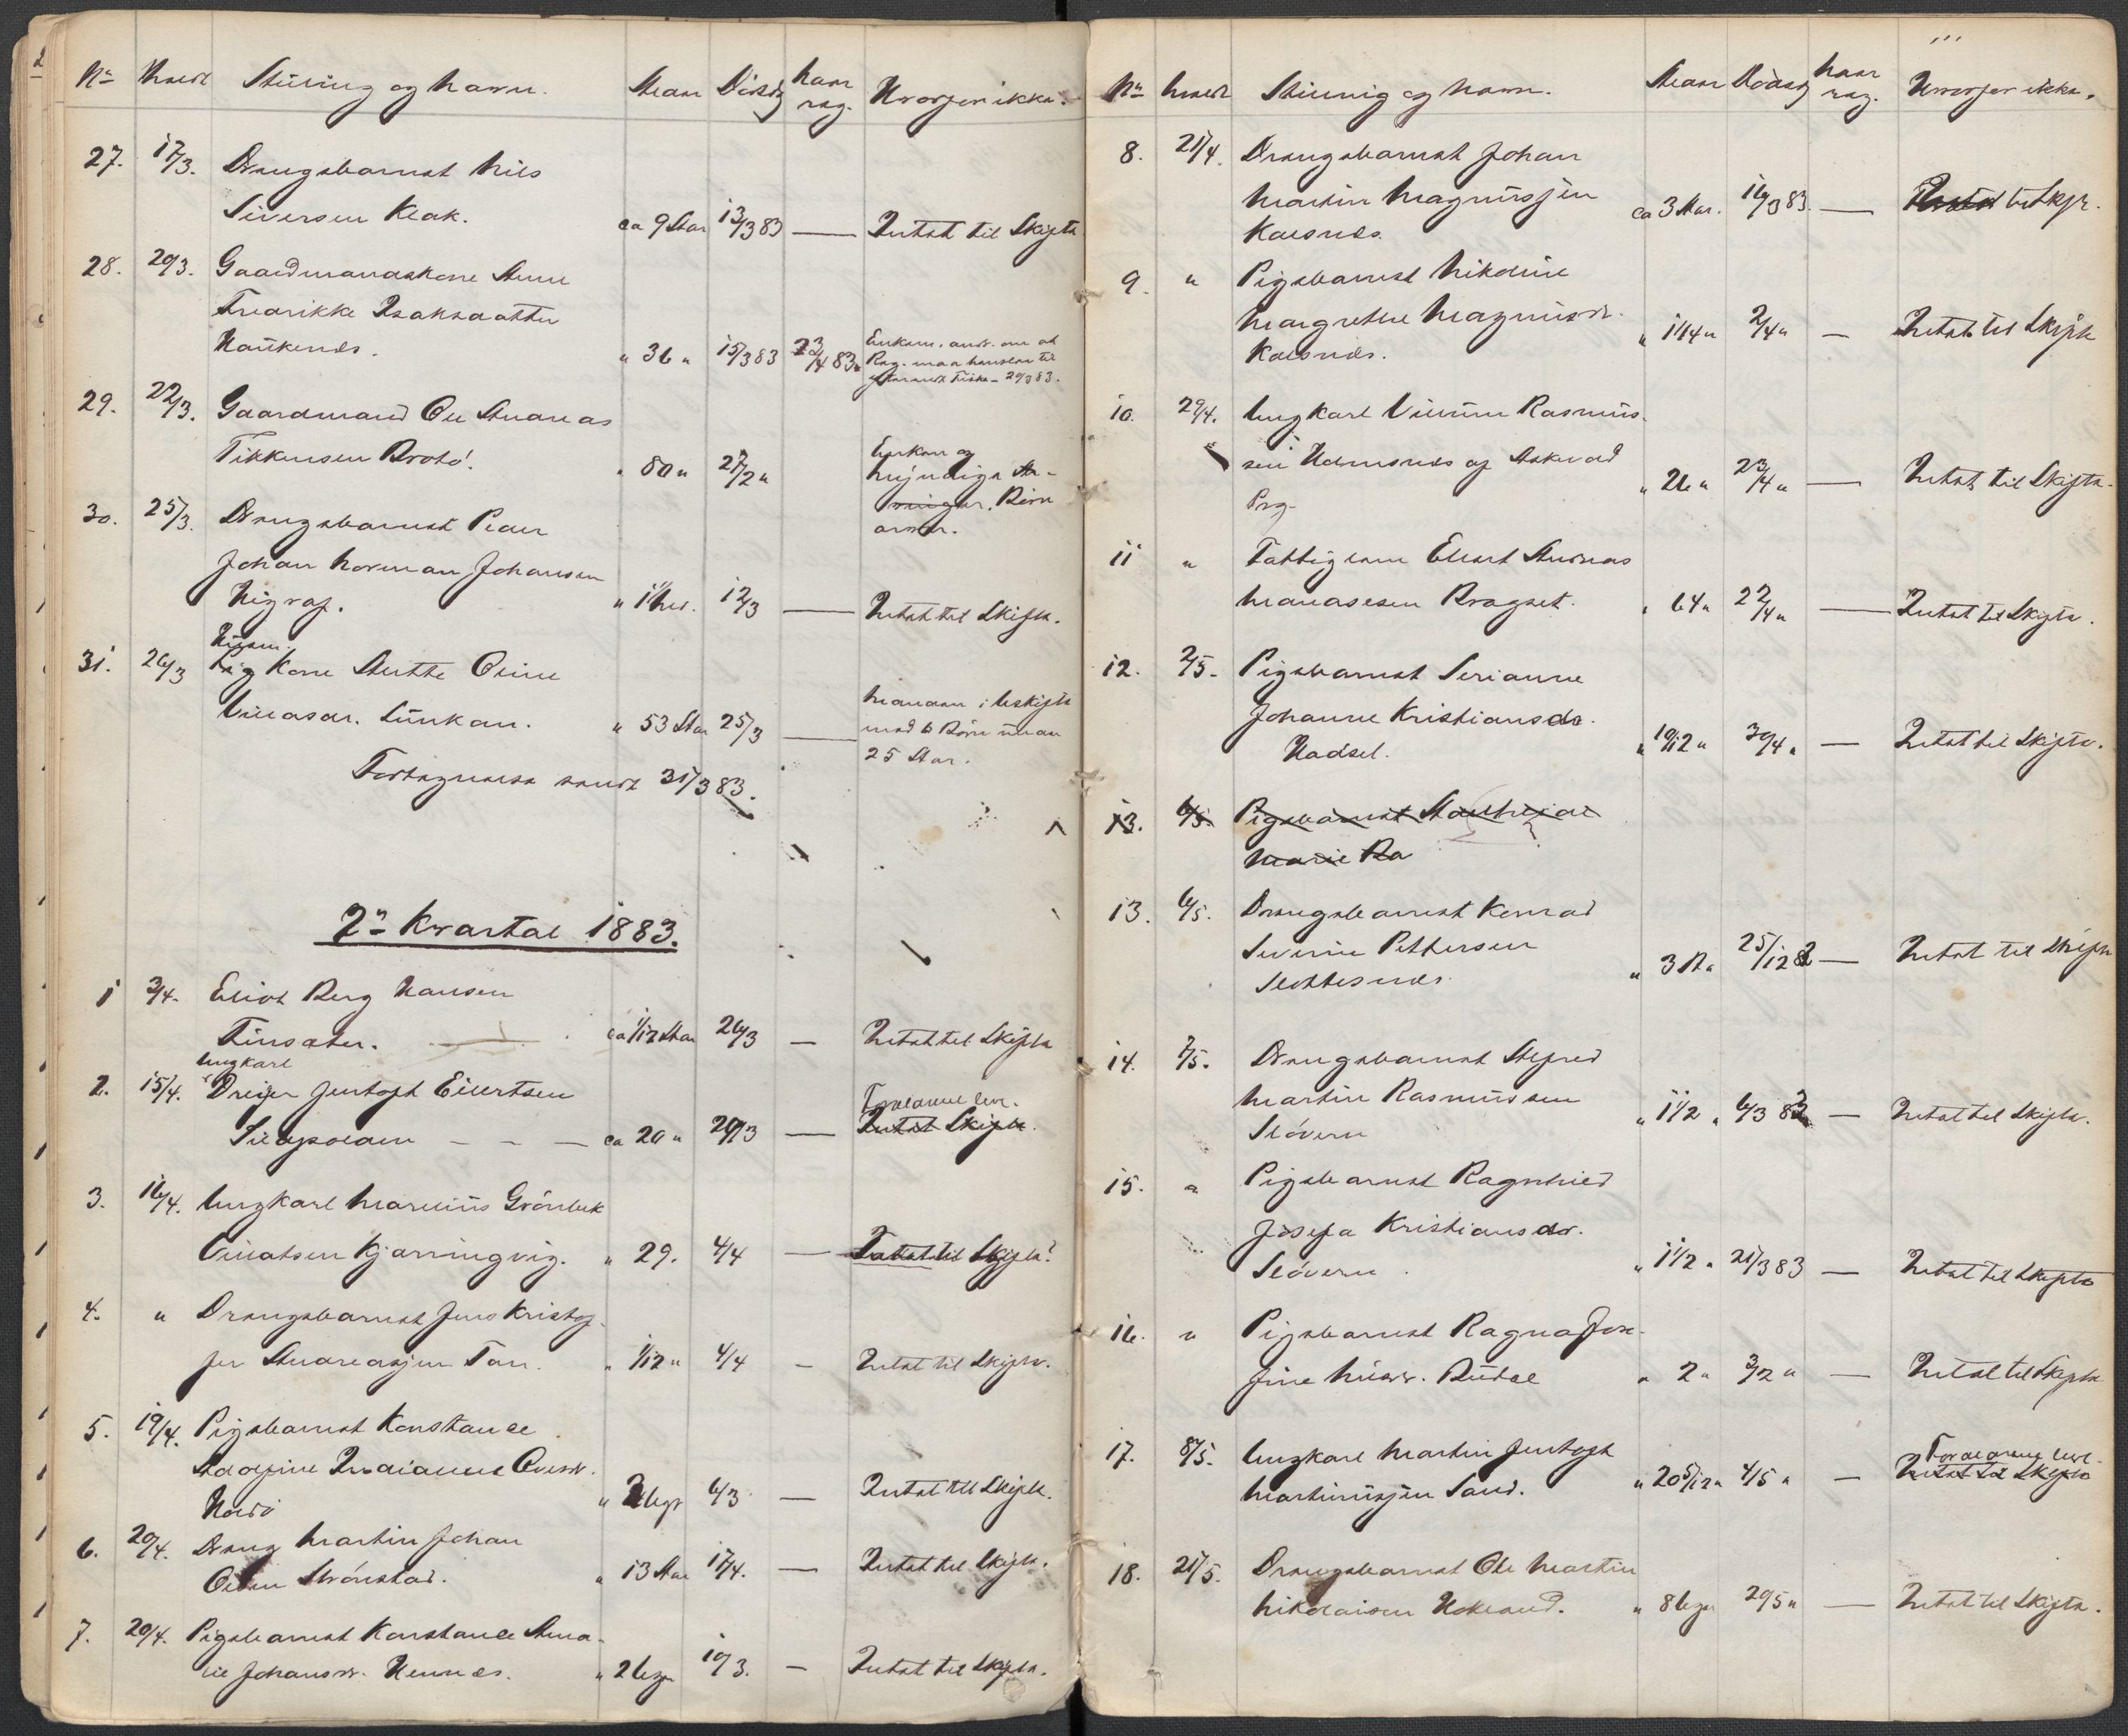 No Anm. Stilling og Navn. Alder Dödsdag Naar reg. Hvorfor ikke.
27. 17/3. Drengebarnet Nils
Siversen Klak. ca 9 Aar 13/3 83 — Intet til Skifte
28. 20/3. Gaardmandskone Anne
Fredrikke Isaksdatter
Haukenes. " 36 " 15/3 83 23/4 83.
Enkem. anm. om at
Reg. maa henstaa til
29/3 83.
29. 22/3. Gaardmand Ole Andreas
Tikkensen Brotö. " 80 " 27/2 "
Enken og
myndige
Börn
arver.
30. 25/3. Drengebarnet Peder
Johan Norman Johansen
Higraf. " 1 12/3 — Intet til Skifte.
Husm.
31. 26/3 Kone Anette Oline
Lunkan. " 53 Aar 25/3 —
Manden i Uskifte
med 6 Börn under
25 Aar.
Fortegnelse sendt 31/3 83.
2n Kvartal 1883.
1 3/4. Eliot Berg Hansen
Finsæter. ca 1/12 Aar 26/3 — Intet til Skifte
Ungkarl
2. 15/4. Dreyer Jentoft Eilertsen
Sildpolden — — — ca 20 " 20/3 — Forældrene lever.
Intet Skifte.
3. 16/4. Ungkarl Marelius Grönbek
Kjerringvig. " 29. 4/4 — Intet til Skifte?
4. " Drengebarnet Jens Kristof-
fer Andreassen Tan. " 1/12 " 4/4 — Intet til Skifte.
5. 19/4. Pigebarnet Konstance
Adolfine Indianne Olesdr.
Hadsö " 2 Uger 6/3 — Intet til Skifte.
6. 20/4. Dreng Martin Johan
Olsen Strönstad. " 13 Aar 17/4. — Intet til Skifte.
7. 20/4. Pigebarnet Konstance Ama-
lie Johansdr. Hennes. " 2 Uger 10/3. — Intet til Skifte.
No Anm. Stilling og Navn. Alder Dödsdag Naar reg. Hvorfor ikke.
8. 21/4. Drengebarnet Johan
Martin Magnussen
Kalsnes. ca 3 Aar. 16/3 83. — Intet til Skifte.
9. " Pigebarnet Nikoline
Margrethe Magnusdr.
Kalsnes. " 1 1/4 " 2/4 " — Intet til Skifte
10. 29/4. Ungkarl Villum Rasmus-
sen Holmsnes af Askvold
Prg. " 26 " 23/4 " — Intet til Skifte.
11 " Fattiglem Elert Andreas
Manassen Kragset. " 64 " 22/4 " — Intet til Skifte.
12. 2/5. Pigebarnet Serianne
Johanne Kristiansdr.
Hadsel. " 10/12 " 30/4 " — Intet til Skifte.
13. 6/5. Pigebarnet
Marie Ra
13. 6/5. Drengebarnet Konrad
Severin Pettersen
Slottesnes. " 3 A " 25/12 82 — Intet til Skifte
14. 7/5. Drengebarnet Alfred
Martin Rasmussen
Slöveru " 1 1/2 " 6/3 83 — Intet til Skifte.
15. " Pigebarnet Ragnhild
Josefa Kristiansdr.
Slöveru. " 1 1/2 " 21/3 83 — Intet til Skifte
16. " Pigebarnet Ragna Jose-
fine Nilsdr. Budal " 2 " 3/2 " — Intet til Skifte
17. 8/5. Ungkarl Martin Jentoft
Martinussen Sand. " 20 5/12 " 4/5 " — Forældrene lever.
Intet til Skifte
18. 21/5. Drengebarnet Ole Martin
Nikolaisen Hokland. " 8 Uger 20/5 " — Intet til Skifte.